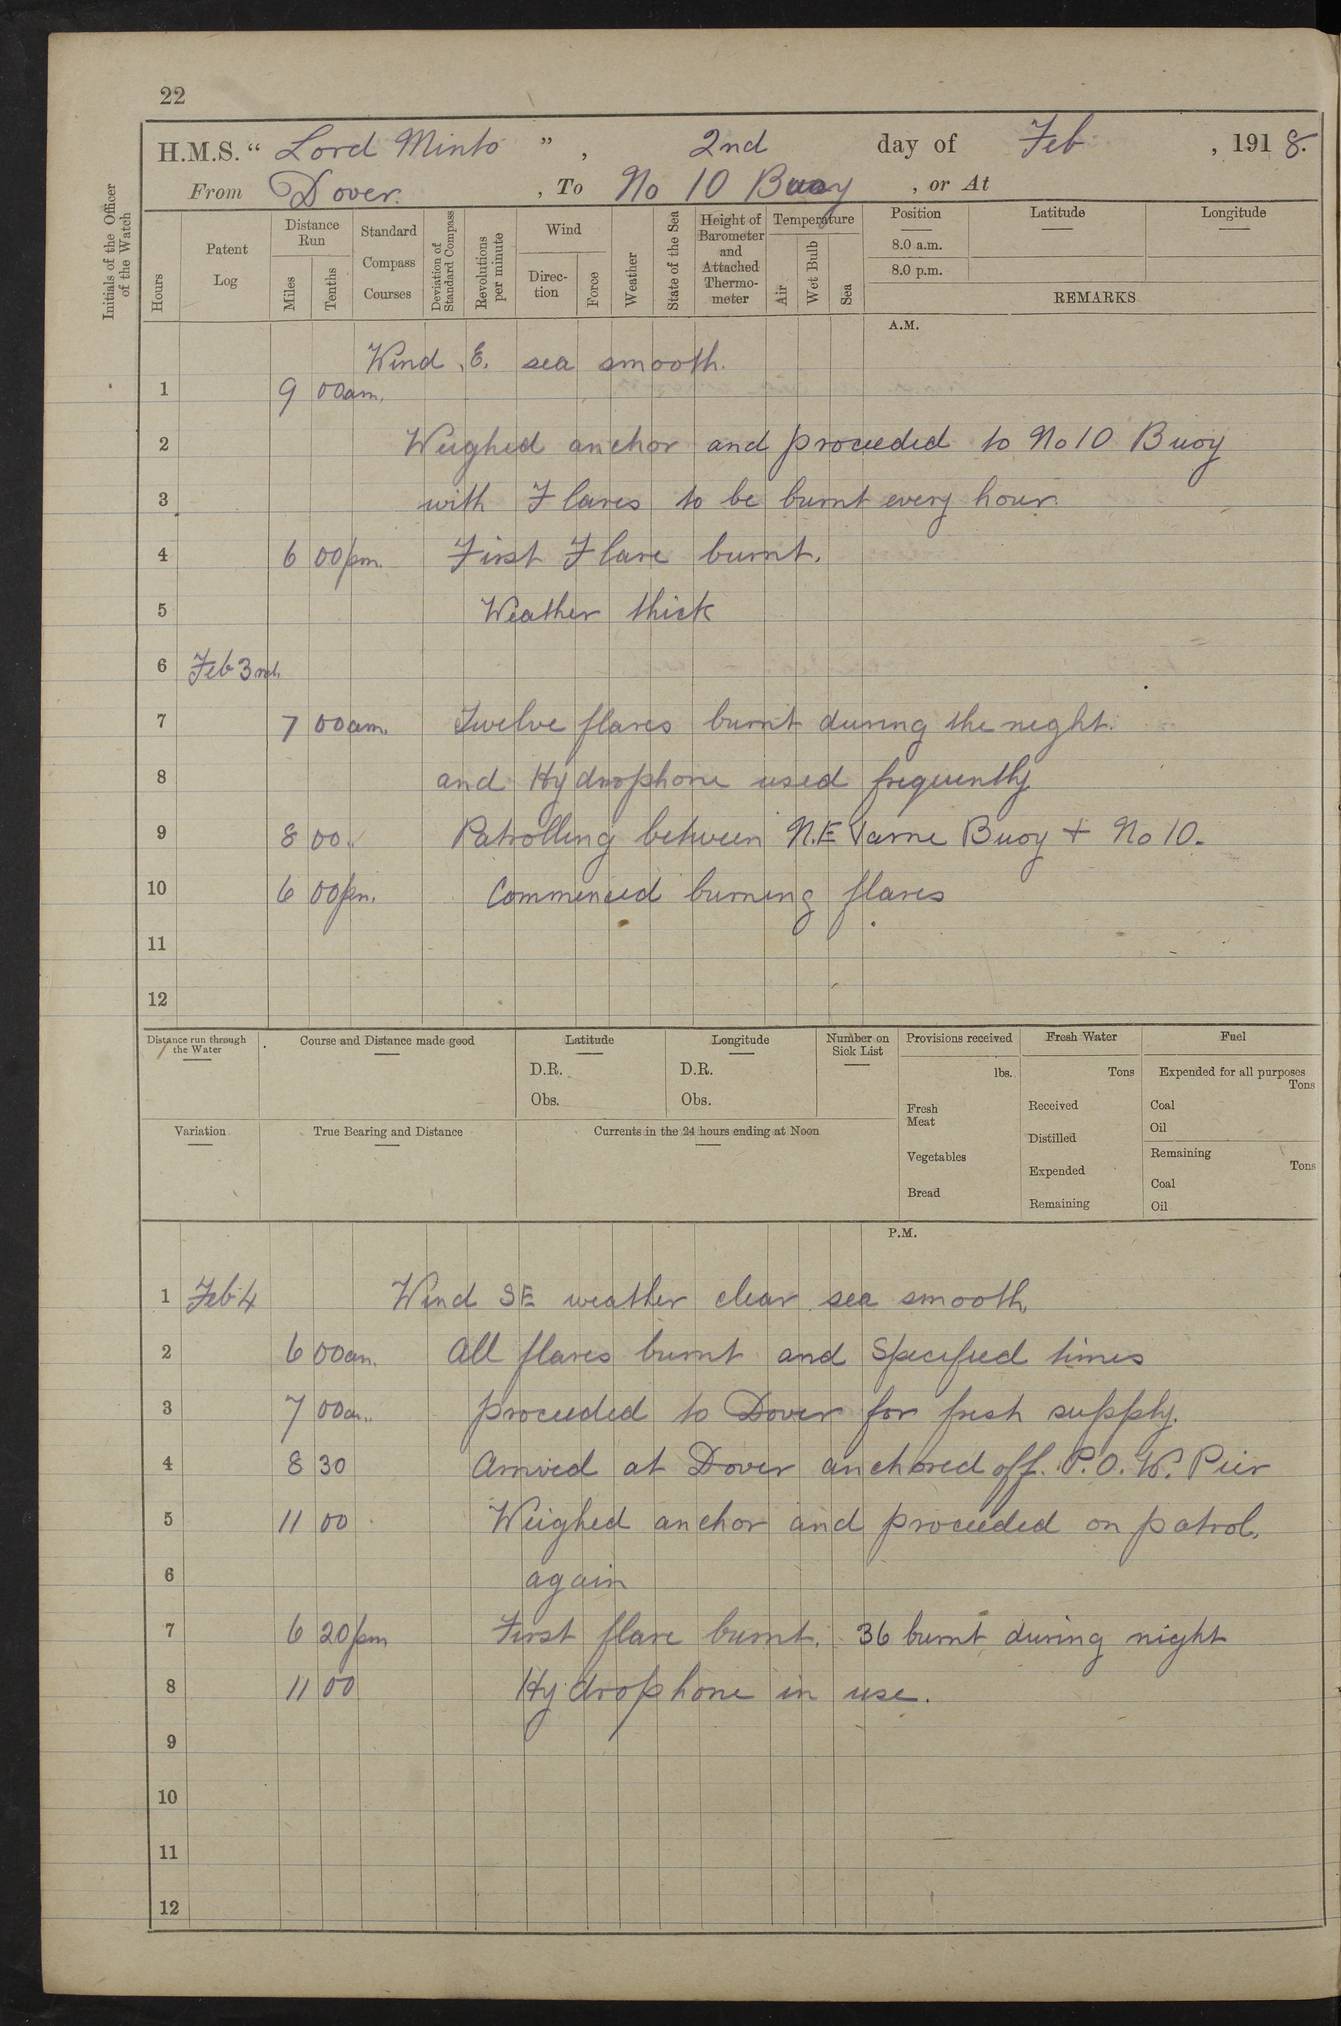 22
H.M.S. “ Lord Minto ” , 2nd day of Feb , 1918.
From Dover. , To No 10 Buoy , or At
Initials of the Officer of the Watch
Hours
Patent Log
Distance Run
Miles
Tenths
Standard Compass Courses
Deviation of Standard Compass
Revolutions per minute
Wind
Direction
Force
Weather
State of the Sea
Height of Barometer and Attached Thermometer
Temperature
Air
Wet Bulb
Sea
Position
8.0 a.m.
8.0 p.m.
Latitude
Longitude
REMARKS
A.M.
Wind E. sea smooth.
1 9 00am.
2 Weighed anchor and proceeded to No 10 Buoy
3 with Flares to be burnt every hour.
4 6 00pm. First Flare burnt.
5 Weather thick
6 Feb 3rd.
7 7 00am. Twelve flares burnt during the night.
8 and Hydrophone used frequently
9 8 00 Patrolling between N.E Varne Buoy + No 10.
10 6 00pm. Commenced burning flares
11
12
Distance run through the Water
Course and Distance made good
Latitude
D.R.
Obs.
Longitude
D.R.
Obs.
Number on Sick List
Provisions received
lbs.
Fresh Meat
Vegetables
Bread
Fresh Water
Tons
Received
Distilled
Expended
Remaining
Fuel
Expended for all purposes
Tons
Coal
Oil
Remaining
Tons
Coal
Oil
Variation
True Bearing and Distance
Currents in the 24 hours ending at Noon
P.M.
1 Feb 4 Wind SE weather clear sea smooth,
2 6 00am. All flares burnt and Specified times
3 7 00a.. proceeded to Dover for fresh supply.
4 8 30 Arrived at Dover anchored off. P.O.W. Pier
5 11 00 Weighed anchor and proceeded on patrol,
6 again
7 6 20pm First flare burnt. 36 burnt during night
8 11 00 Hydrophone in use.
9
10
11
12